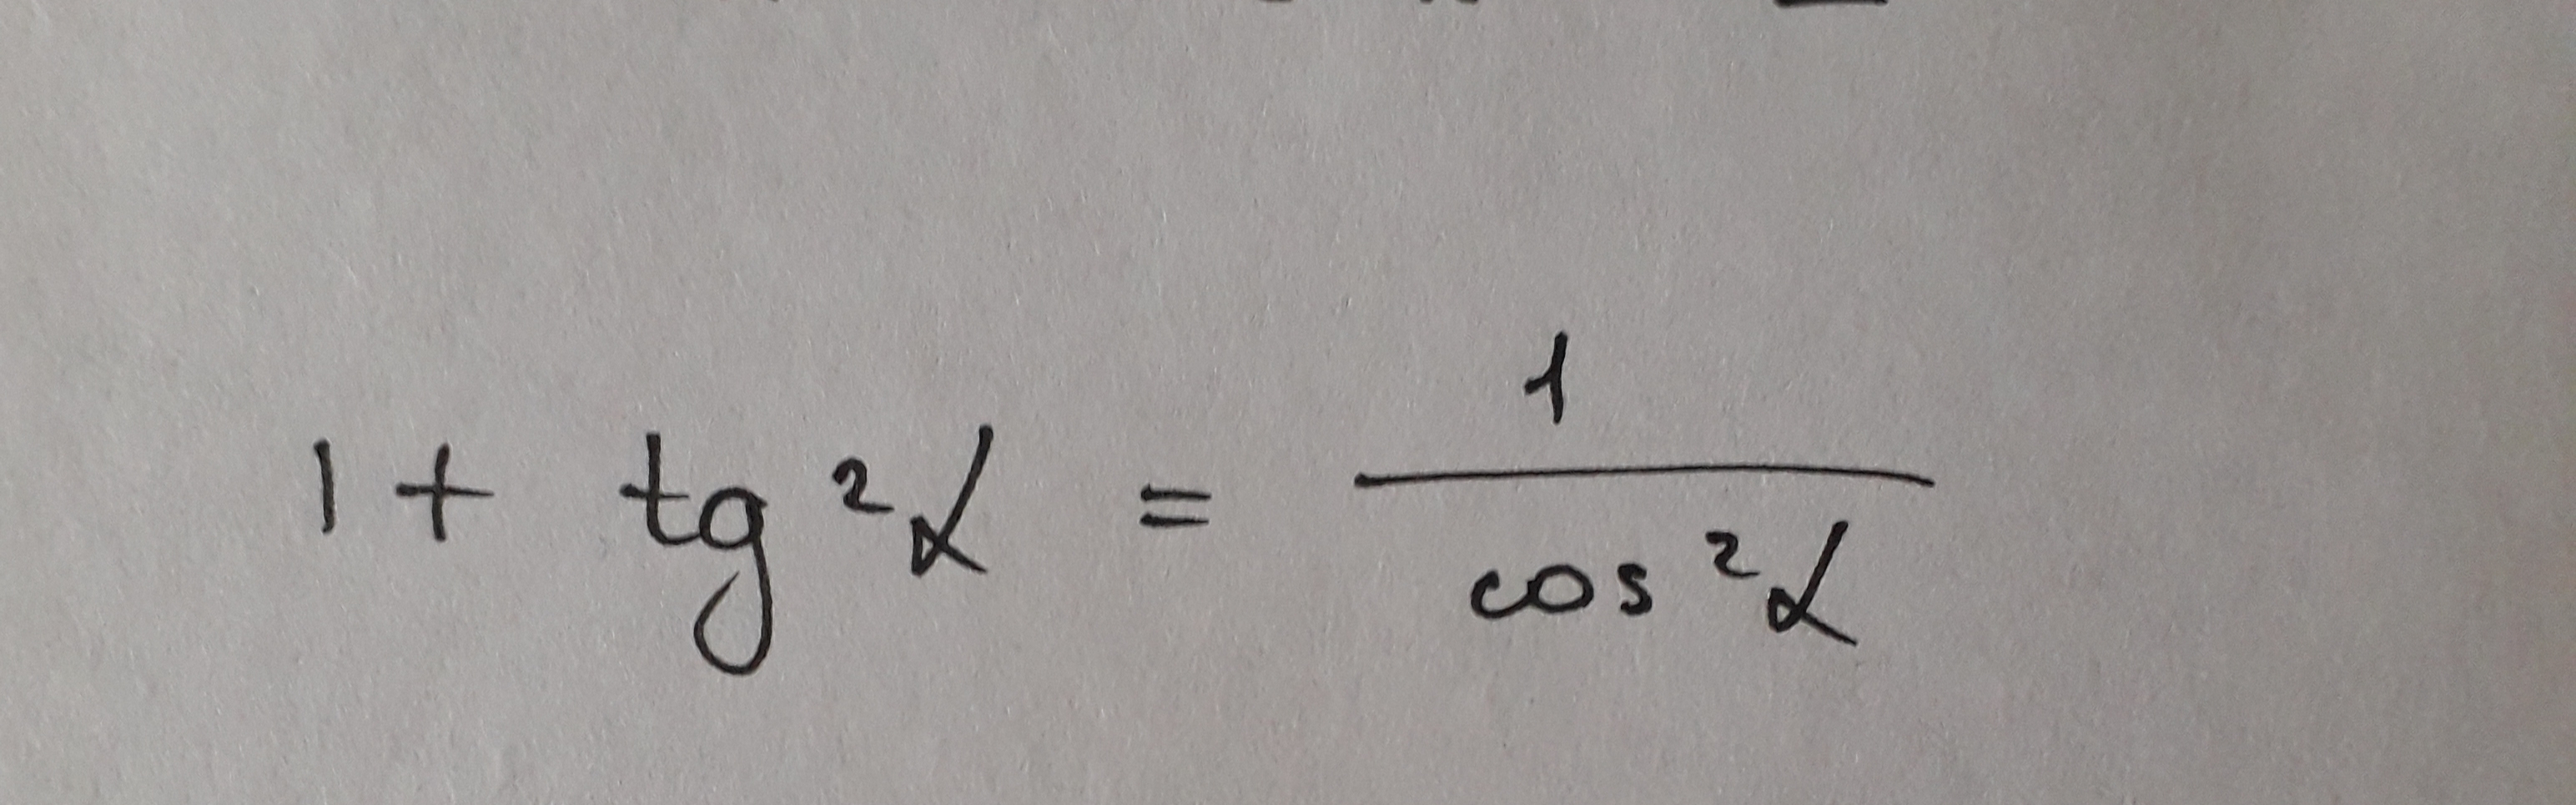 1 + tg²α = 1/cos²α